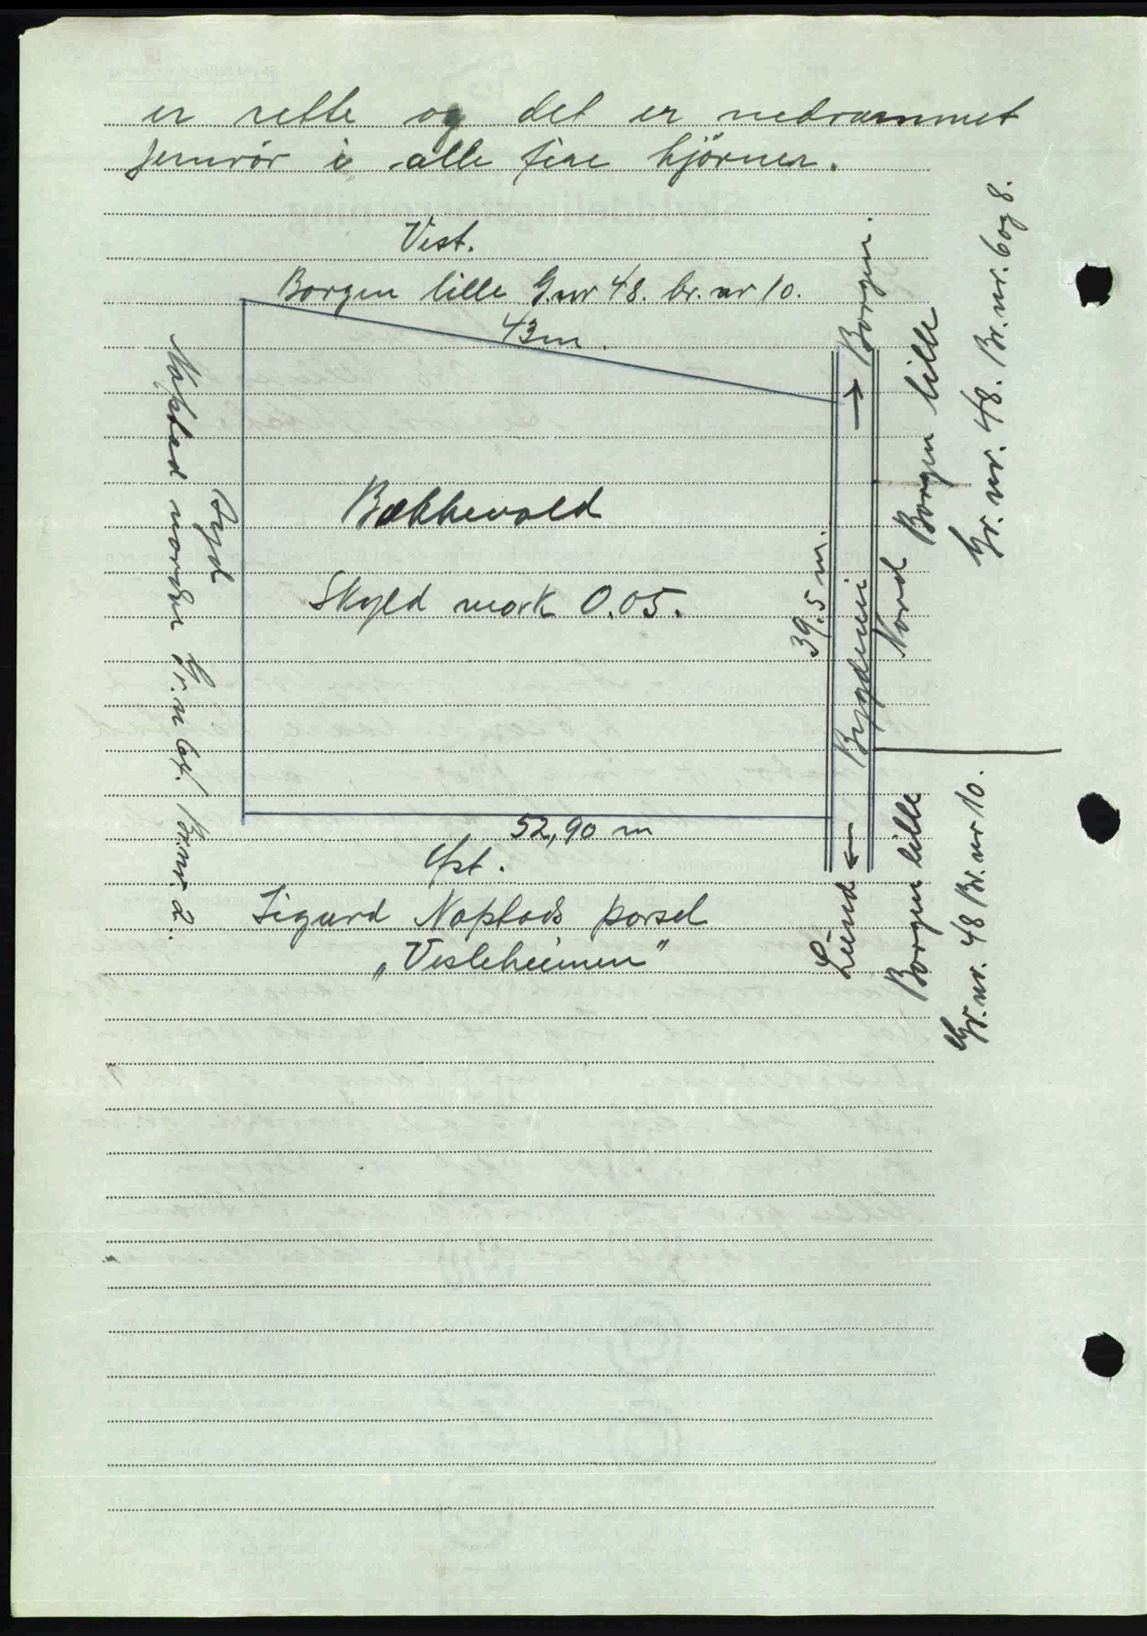 er rette og det er nedrammet
jernrör i alle fire hjörner.
Vest.
Borgen lille G.nr 48. br. nr 10.
43 m.
Bækkevold
Skyld mork 0.05.
52,90 m
Öst.
Sigurd Noplads parsel
„Vesleheimen"
Syd
Noplad nordre Gr.n 64. Br.nr. 2.
39.5 m.
Lund ← Bygdevei → Borgen.
Nord Borgen lille
Gr. nr. 48. Br. nr. 6 og 8.
Borgen lille
Gr. nr. 48 Br. nr 10.